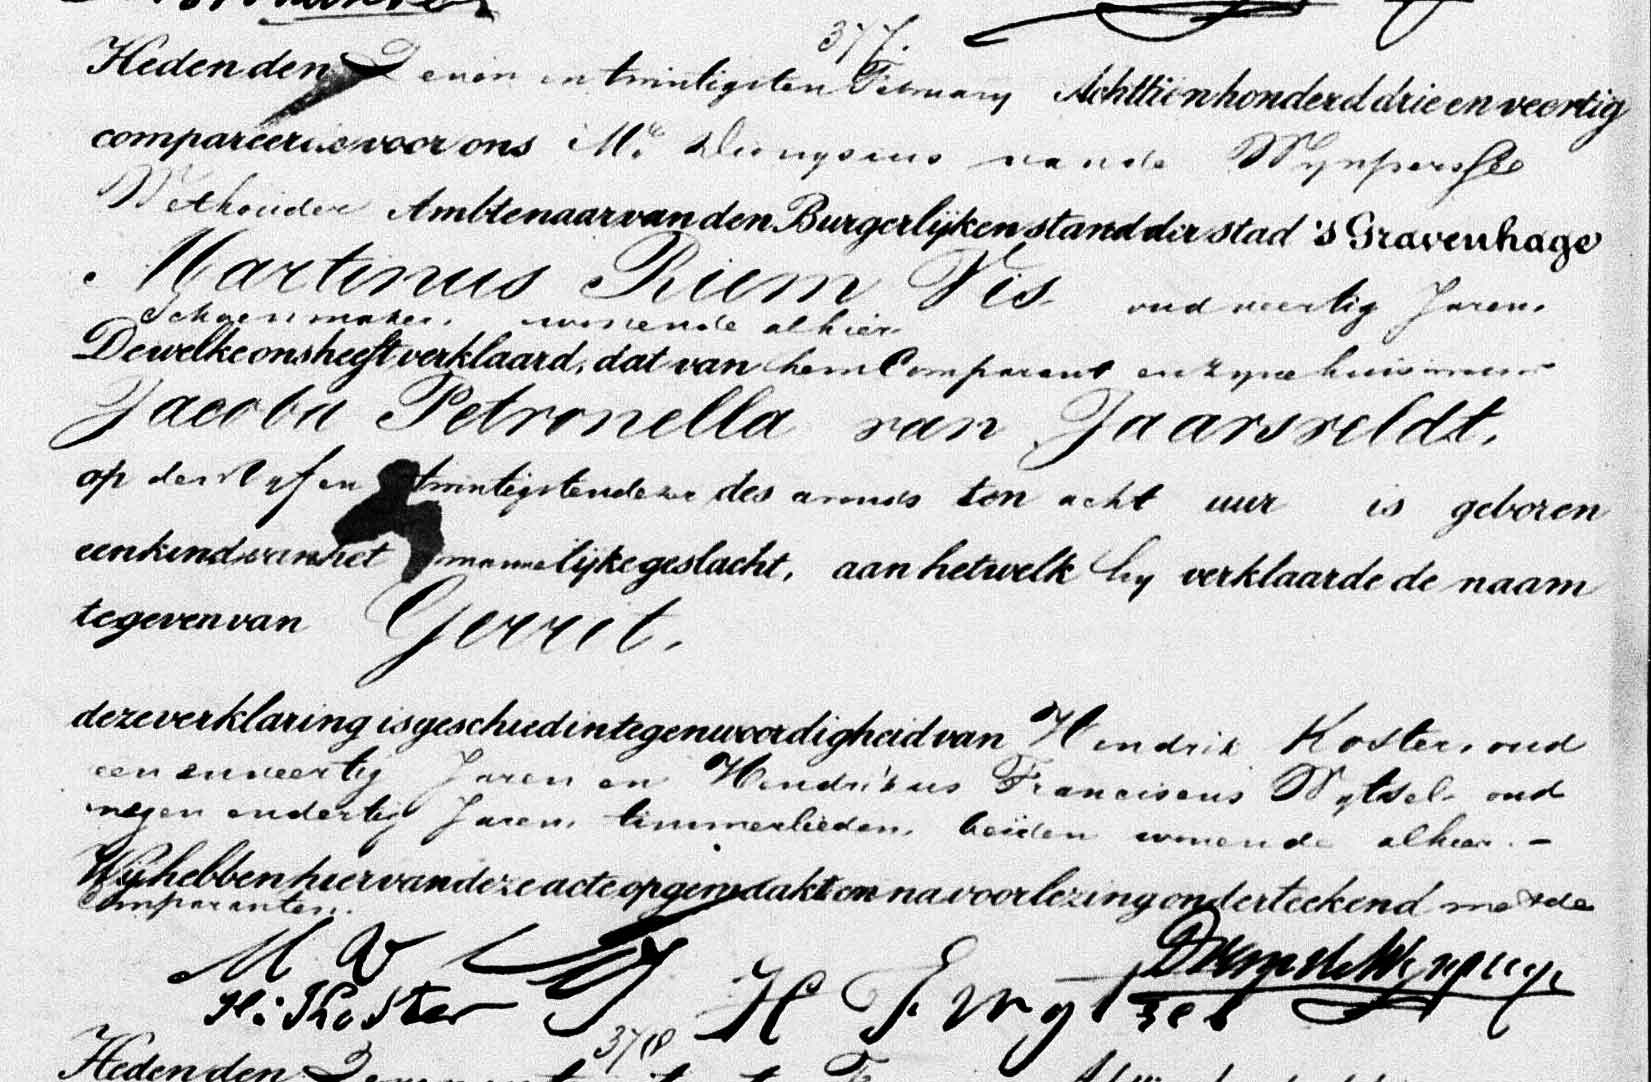 377.
Heden den Zeven en twintigsten February Achttienhonderd drie en veertig
compareerde voor ons Mr. Dionysius van de Wynpersse
Wethouder Ambtenaar van den Burgerlijken stand der stad 's Gravenhage
Martinus Riem Vis oud veertig Jaren.
Schoenmaker. wonende alhier
Dewelke ons heeft verklaard, dat van hem Comparant en zyne huisvrouw
Jacoba Petronella van Jaarsveldt.
op den Vyf en twintigsten dezer des avonds ten acht uur is geboren
een kind van het mannelijke geslacht, aan hetwelk hy verklaarde de naam
te geven van Gerrit.
deze verklaring is geschied in tegenwoordigheid van Hendrik Koster, oud
een en veertig Jaren en Hendrikus Franciscus Wytsel oud
negen en dertig Jaren. timmerlieden. beiden wonende alhier. -
Wij hebben hiervan deze acte opgemaakt en na voorlezing onderteekend met de
Comparanten.
M R Vis
H: Koster H F Wytsel
378
Heden den Zeven